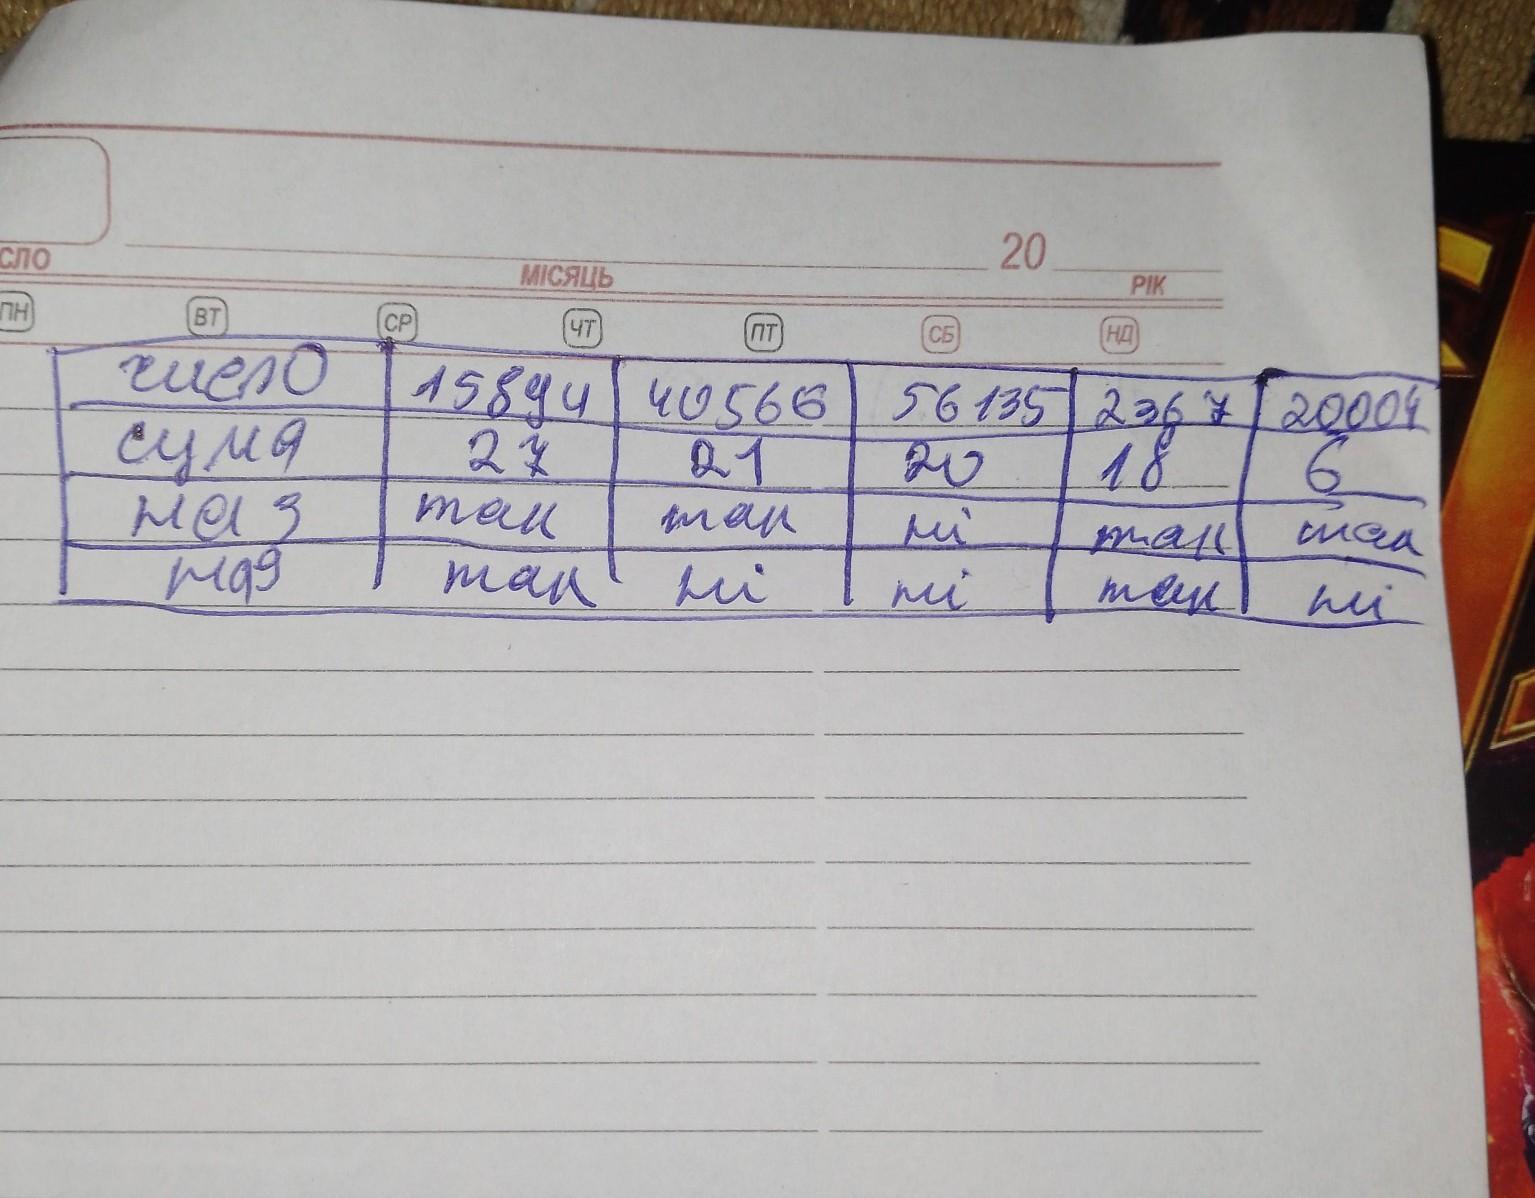 СЛО МІСЯЦЬ 20 РІК
ПН ВТ СР ЧТ ПТ СБ НД
число 15894 40566 56135 2367 20004
сума 27 21 20 18 6
на 3 так так ні так так
на9 так ні ні так ні